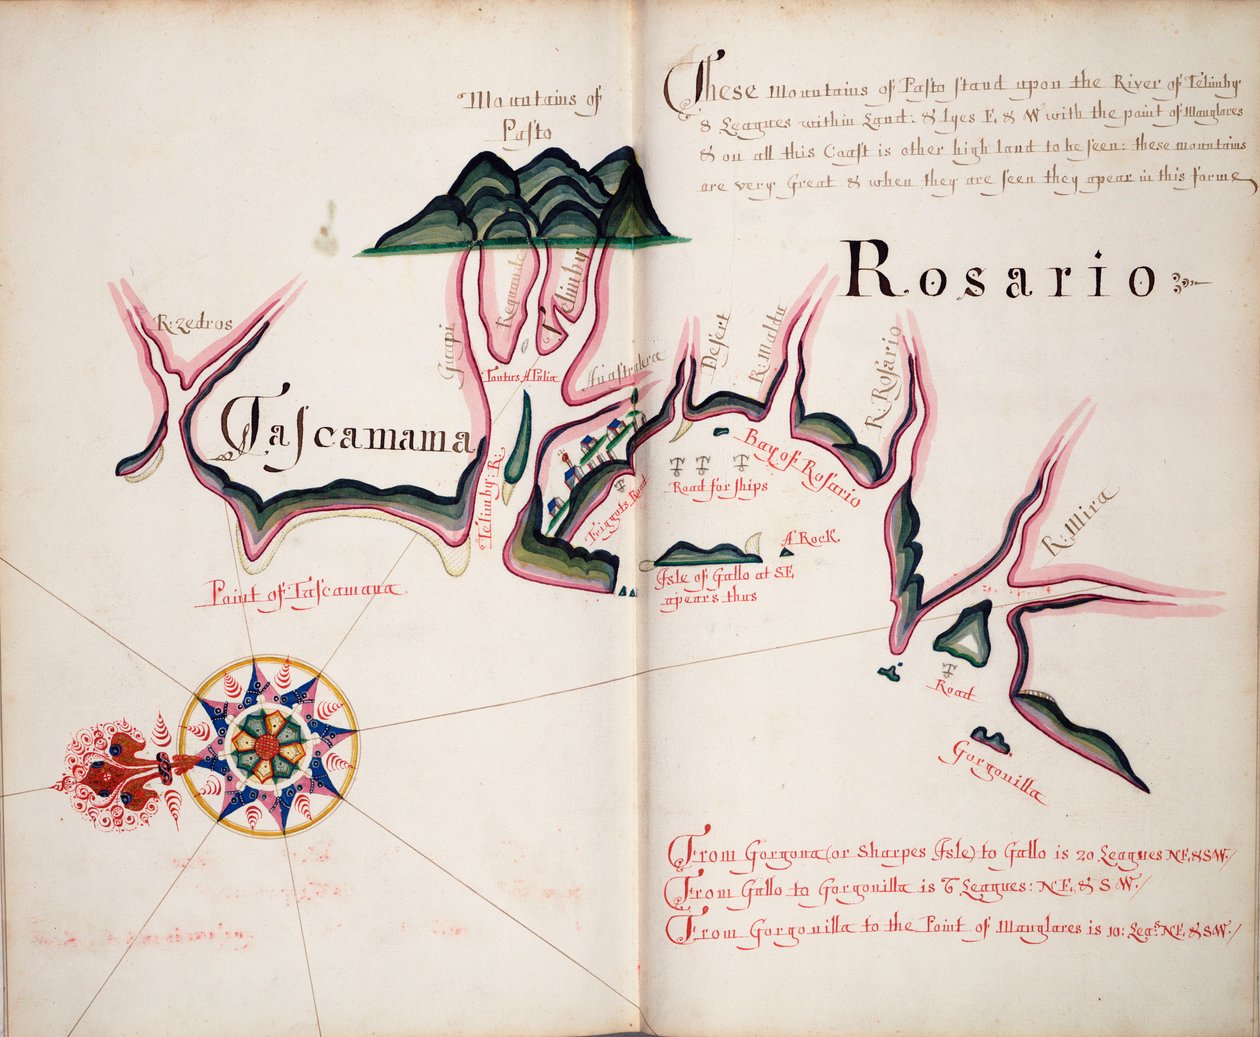 Mountains of
Paſto
These mountains of Paſto ſtand upon the River of Telimby
8 Leagues within Land: & lyes E, & W with the point of Manglares
& on all this Coaſt is other high land to be ſeen: these mountains
are very Great & when they are ſeen they apear in this forme
Rosario
R: Zedros
Guapi
Telimby
Deſert
R: Maldu
R: Roſario
R: Mira
Taſcamama
Telimby: R.
Bay of Rosario
Road for ſhips
Friggots Road
A Rock
Isle of Gallo at SE,
apears thus
Point of Taſcamana
Road
Gorgonilla
From Gorgona (or Sharpes Isle) to Gallo is 20 Leagues NE, & SW./
From Gallo to Gorgonilla is 6 Leagues: NE, & SW./
From Gorgonilla to the Point of Manglares is 10: Legs: NE, & SW./